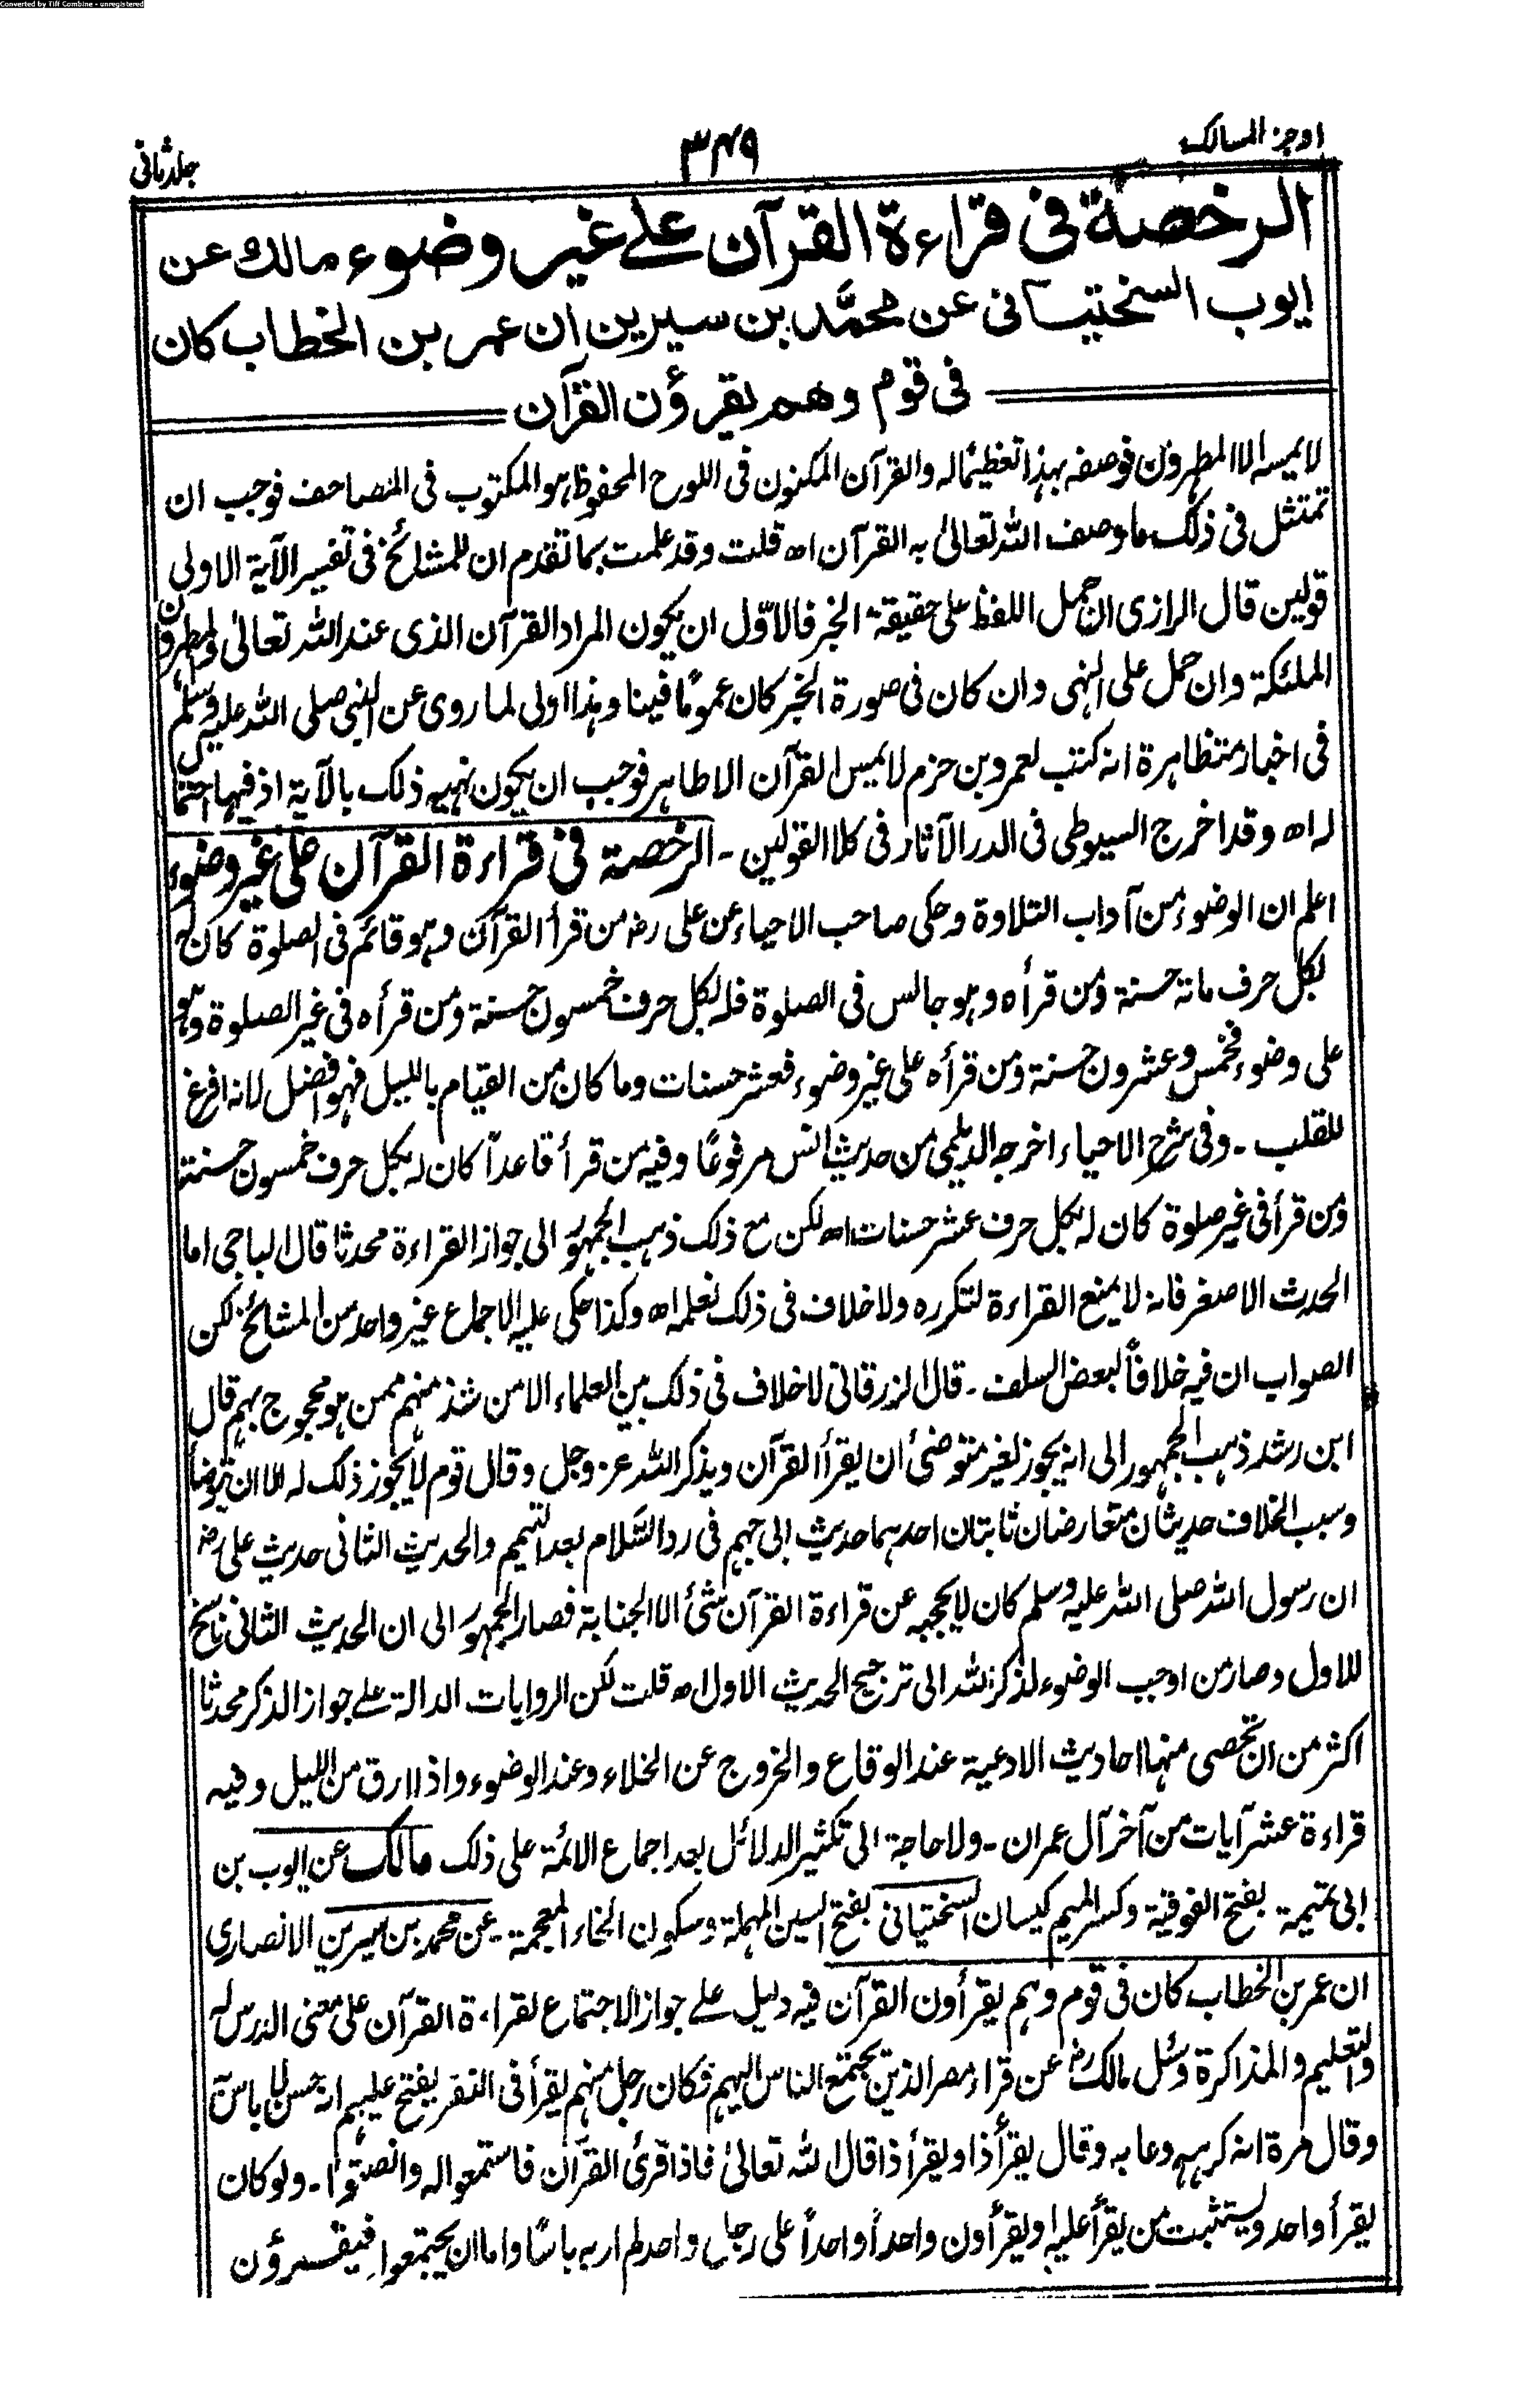 Converted by Tiff Combine - unregistered
اوجز المسالك
٣٤٩
جلد ثانى
الرخصة فى قراءة القرآن على غير وضوء مالك عن
ايوب السختيانى عن محمد بن سيرين ان عمر بن الخطاب كان
فى قوم وهم يقرؤن القرآن
لا يمسه الا المطهرون فوصفه بهذا تعظيما له والقرآن المكنون فى اللوح المحفوظ هو المكتوب فى المصاحف فوجب ان
تمتثل فى ذلك ما وصف الله تعالىٰ به القرآن اھ قلت وقد علمت بما تقدم ان للمشائخ فى تفسير الآية الاولى
قولين قال الرازى ان حمل اللفظ على حقيقة الخبر فالاوّل ان يكون المراد القرآن الذى عند الله تعالىٰ والمطهرون
الملئكة وان حمل على النهى وان كان فى صورة الخبر كان عمومًا فينا وهذا اولى لما روى عن النبى صلى الله عليه وسلم
فى اخبار متظاهرة انه كتب لعمرو بن حزم لا يمس القرآن الا طاهر فوجب ان يكون نهيه ذلك بالآية اذ فيها احتما
له اھ وقد اخرج السيوطى فى الدر الآثار فى كلا القولين - الرخصة فى قراءة القرآن على غير وضوء
اعلم ان الوضوء من آداب التلاوة وحكى صاحب الاحياء عن على رض من قرأ القرآن وهو قائم فى الصلوة كان له
بكل حرف مائة حسنة ومن قرأه وهو جالس فى الصلوة فله بكل حرف خمسون حسنة ومن قرأه فى غير الصلوة وهو
على وضوء فخمس وعشرون حسنة ومن قرأه على غير وضوء فعشر حسنات وما كان من القيام بالليل فهو افضل لانه افرغ
للقلب - وفى شرح الاحياء اخرجه الديلمى من حديث انس مرفوعًا وفيه من قرأ قاعداً كان له بكل حرف خمسون حسنة
ومن قرأ فى غير صلوة كان له بكل حرف عشر حسنات اھ لكن مع ذلك ذهب الجمهور الى جواز القراءة محدثا قال الباجى اما
الحدث الاصغر فانه لا يمنع القراءة لتكرره ولا خلاف فى ذلك نعلمه اھ وكذا حكى عليه الاجماع غير واحد من المشائخ لكن
الصواب ان فيه خلافاً لبعض السلف - قال الزرقانى لا خلاف فى ذلك بين العلماء الا من شذ منهم ممن هو محجوج بهم قال
ابن رشد ذهب الجمهور الى انه يجوز لغير متوضئ ان يقرأ القرآن ويذكر الله عز وجل وقال قوم لا يجوز ذلك له الا ان يتوضأ
وسبب الخلاف حديثان متعارضان ثابتان احدهما حديث ابى جهم فى رد السَّلام بعد التيمم والحديث الثانى حديث على رض
ان رسول الله صلى الله عليه وسلم كان لا يحجبه عن قراءة القرآن شئ الا الجنابة فصار الجمهور الى ان الحديث الثانى ناسخ
للاول وصار من اوجب الوضوء لذكر الله الى ترجيح الحديث الاول اھ قلت لكن الروايات الدالة على جواز الذكر محدثا
اكثر من ان تحصى منها احاديث الادعية عند الوقاع والخروج عن الخلاء وعند الوضوء واذا ارق من الليل وفيه
قراءة عشر آيات من آخر آل عمران - ولا حاجة الى تكثير الدلائل بعد اجماع الائمة على ذلك مالك عن ايوب بن
ابى تميمة بفتح الفوقية وكسر الميم كيسان السختيانى بفتح السين المهملة وسكون الخاء المعجمة عن محمد بن سيرين الانصارى
ان عمر بن الخطاب كان فى قوم وهم يقرأون القرآن فيه دليل على جواز الاجتماع لقراءة القرآن على معنى الدرس له
والتعليم والمذاكرة وسئل مالك رض عن قراء مصر الذين يجتمع الناس اليهم فكان رجل منهم يقرأ فى النفر يفتح عليهم انه حسن لا باس به
وقال مرة انه كرهه وعابه وقال يقرأ ذا ويقرأ ذا قال الله تعالىٰ فاذا قرئ القرآن فاستمعوا له وانصتوا - ولو كان
يقرأ واحد ويستثبت من يقرأ عليه او يقرأون واحداً واحداً على رجل واحد لم ار به باسًا واما ان يجتمعوا فيقرؤن